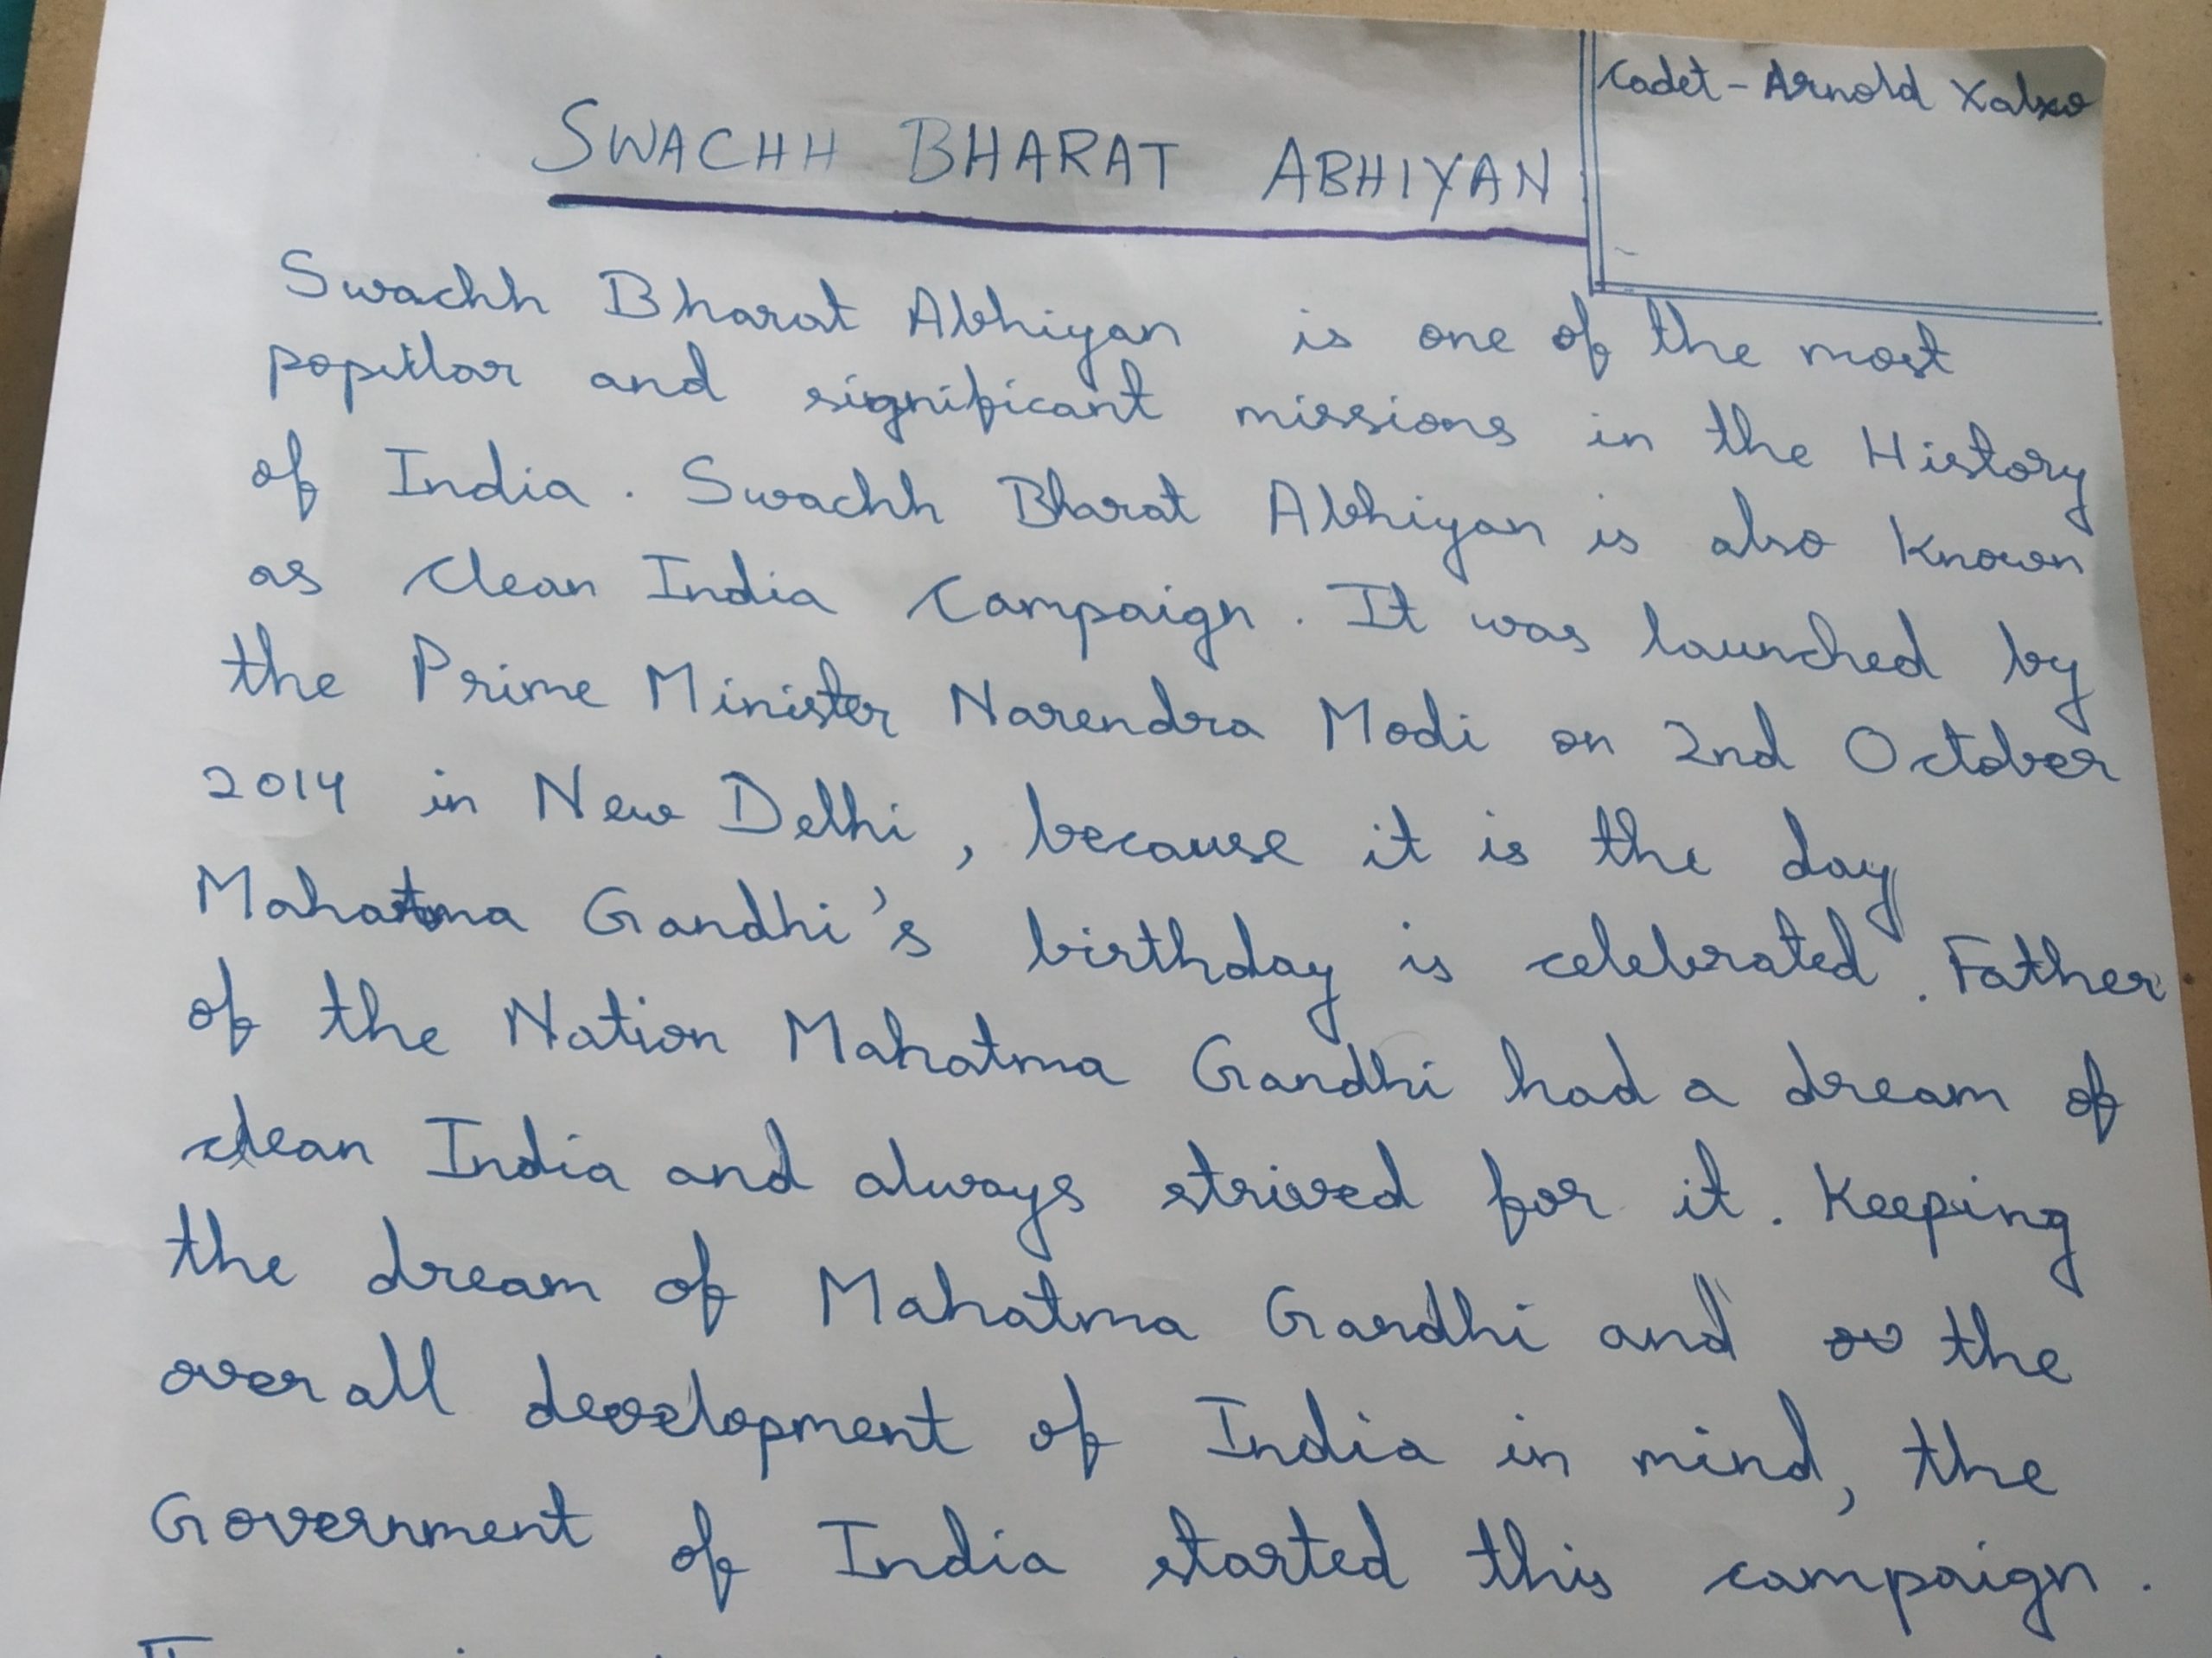 Cadet - Arnold Xalxo
SWACHH BHARAT ABHIYAN
Swachh Bharat Abhiyan is one of the most
popular and significant missions in the History
of India. Swachh Bharat Abhiyan is also Known
as Clean India Campaign. It was launched by
the Prime Minister Narendra Modi on 2nd October
2014 in New Delhi, because it is the day
Mahatma Gandhi's birthday is celebrated. Father
of the Nation Mahatma Gandhi had a dream of
clean India and always strived for it. Keeping
the dream of Mahatma Gandhi and ov the
over all development of India in mind, the
Government of India started this campaign.